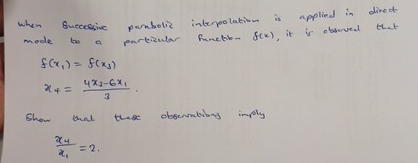 When Successive parabolic interpolation is applied in direct
mode to a particular function f(x), it is observed that
f(x₁) = f(x₃)
x₄ = (4x₃-6x₁)/3 .
Show that these observations imply
x₄/x₁ = 2.